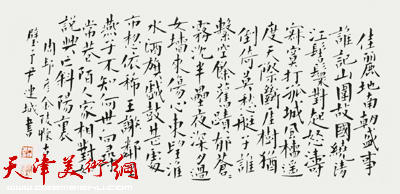 佳麗地南朝盛事
誰記山圍故國繞清
江髻鬟對起怒濤
寂寞打孤城風檣遥
度天際斷崖樹猶
倒倚莫愁艇子誰
繫空餘舊蹟郁蒼
霧沉半壘夜深月過
女墻來傷心東望淮
水酒旗戲鼓甚處
市想依稀王謝鄰里
燕子不知何世向尋
常巷陌人家相對如
說興亡斜陽裏
周邦彦金陵懷古
尹連城書
天津美術網